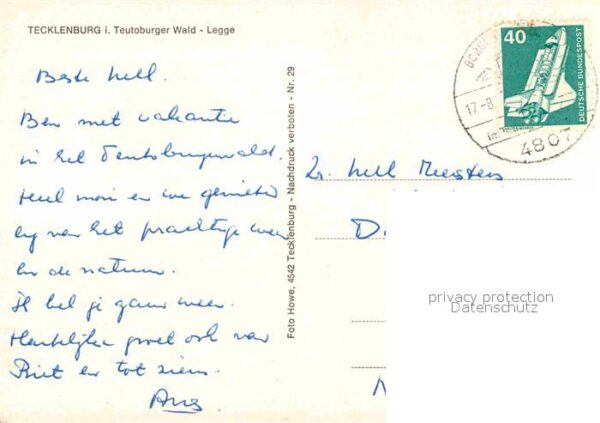 TECKLENBURG i. Teutoburger Wald - Legge
Beste Nell.
Ben met vakantie
in het Teutoburgerwald.
Heel mooi en we genieten
erg van het prachtige weer
en de natuur.
Ik bel je gauw weer.
Hartelijke groet ook van
Piet en tot ziens.
Foto Howe, 4542 Tecklenburg - Nachdruck verboten - Nr. 29
40
DEUTSCHE BUNDESPOST
17.-8.
4807
Nell Meesters
privacy protection
Datenschutz